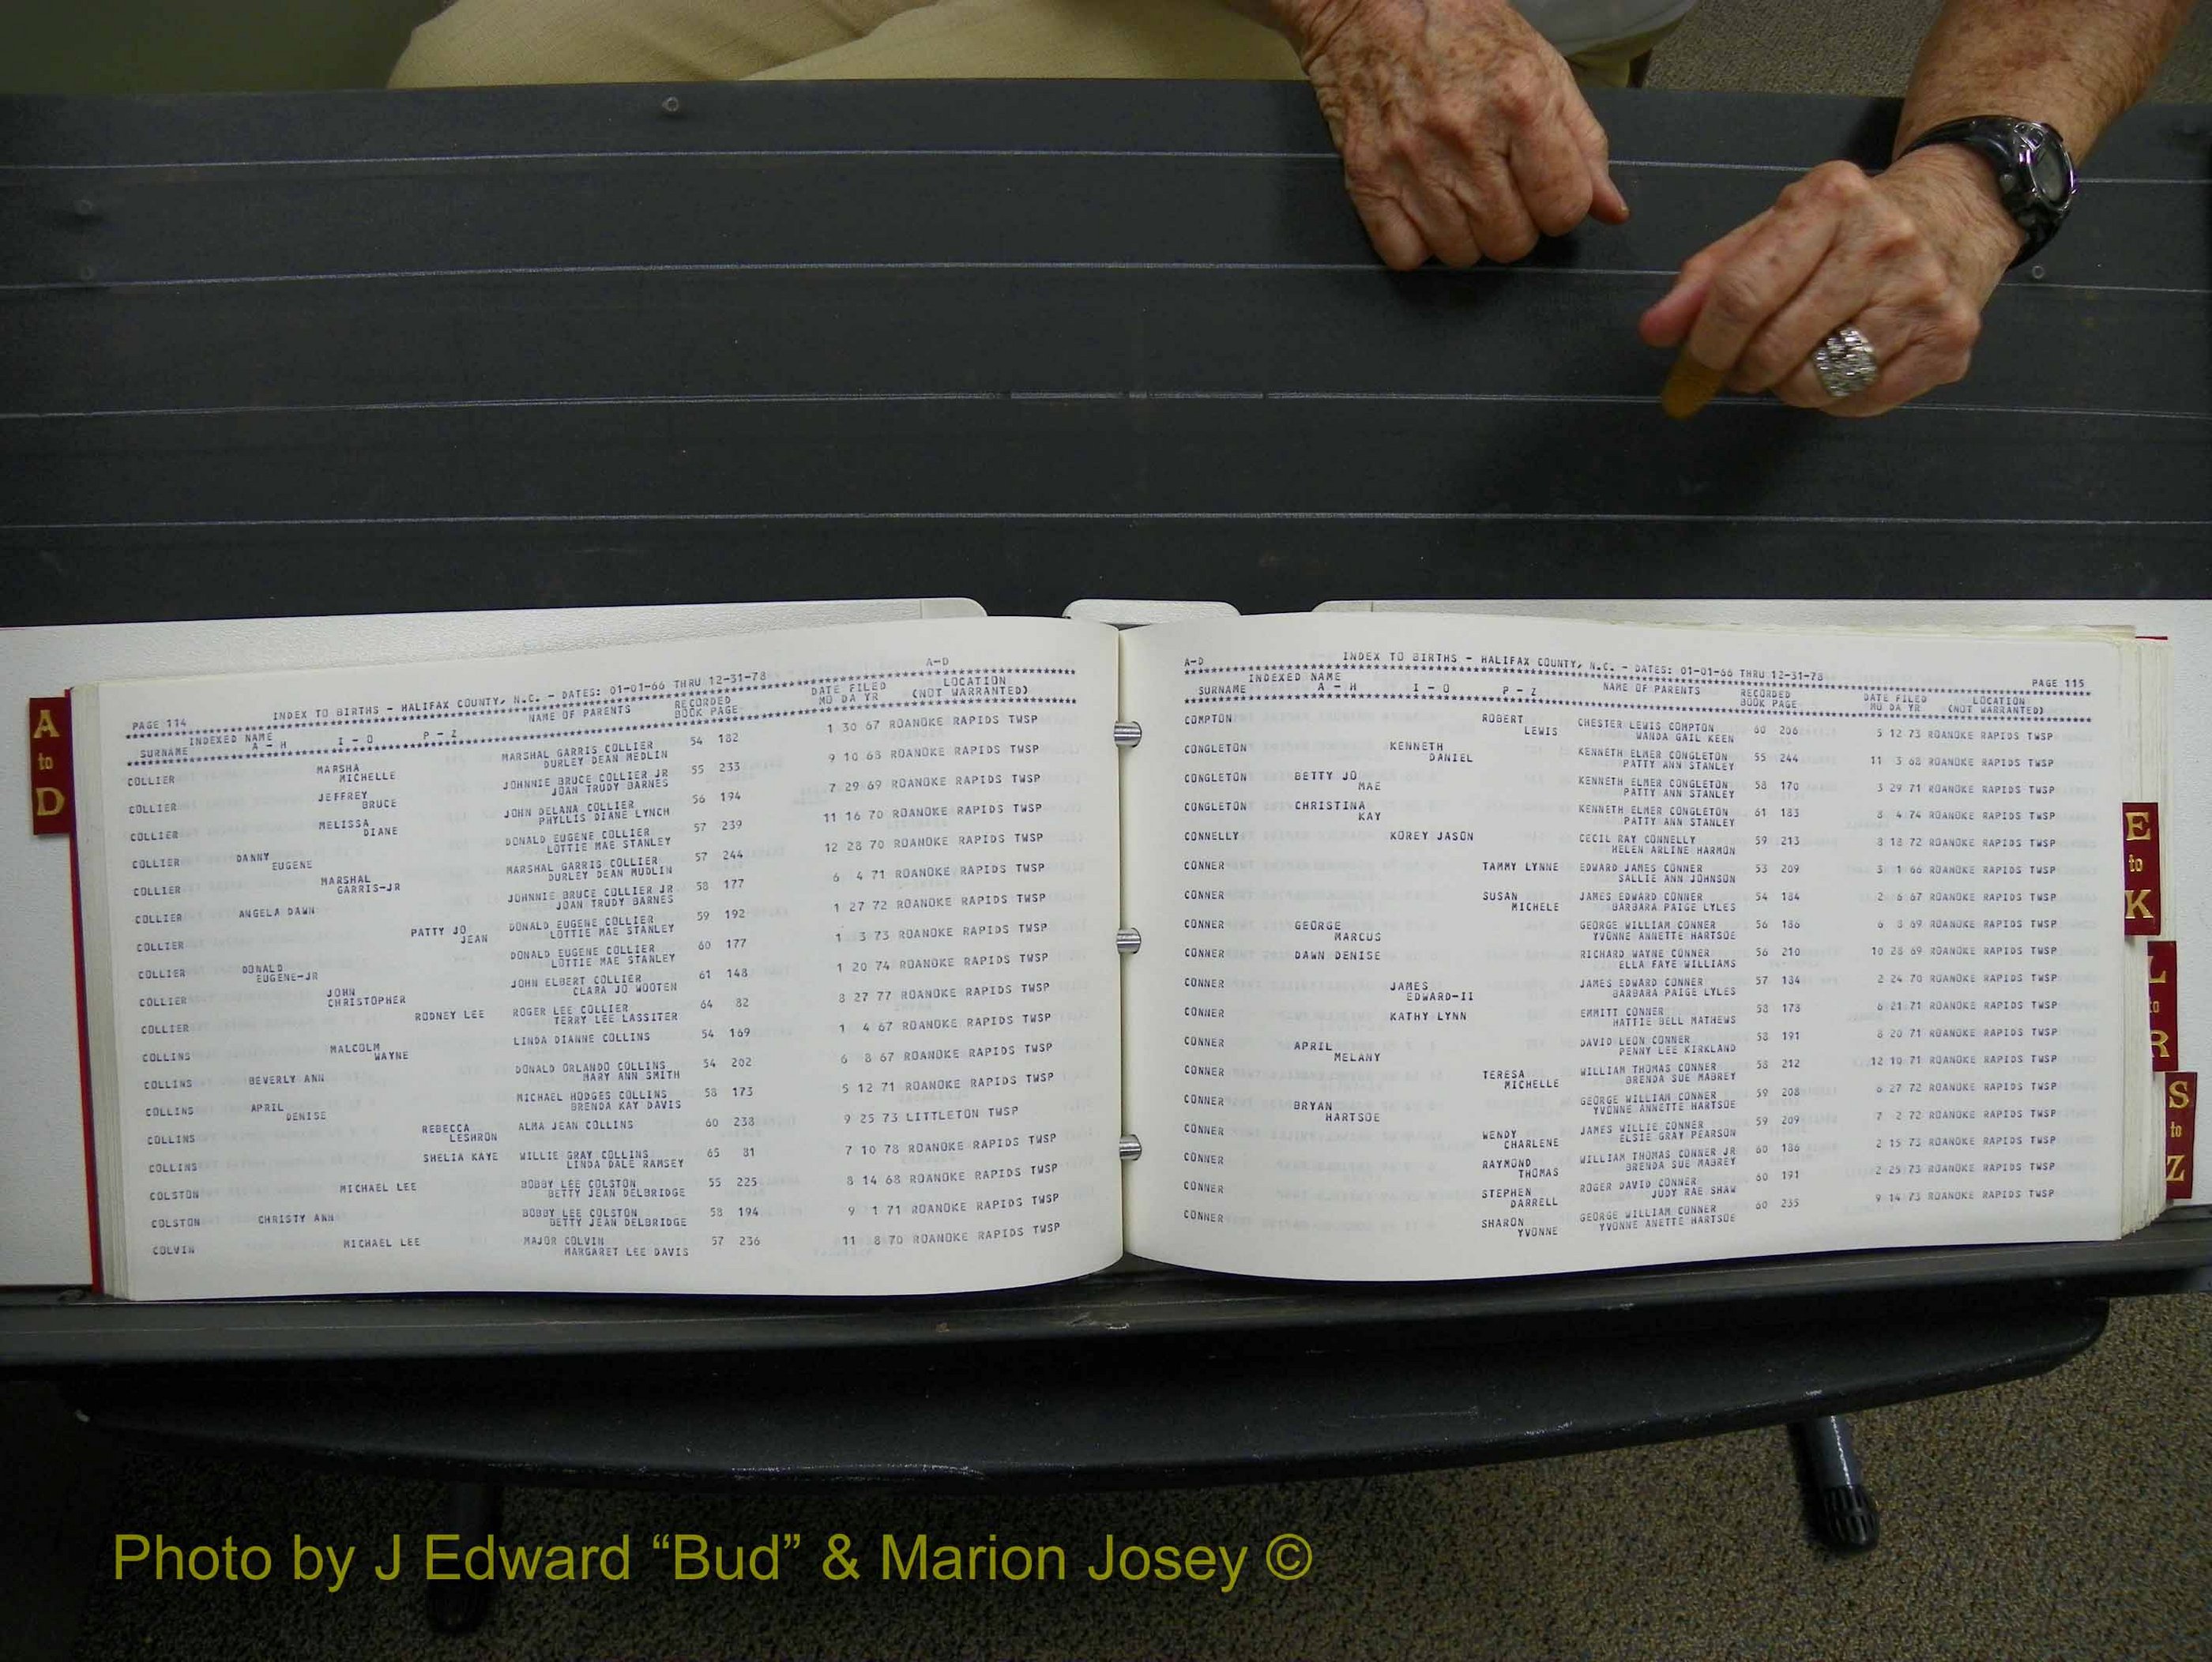 A to D
PAGE 114 INDEX TO BIRTHS - HALIFAX COUNTY, N.C. - DATES: 01-01-66 THRU 12-31-78 A-D
INDEXED NAME RECORDED DATE FILED LOCATION
SURNAME A - H I - O P - Z NAME OF PARENTS BOOK PAGE MO DA YR (NOT WARRANTED)
COLLIER MARSHA MARSHAL GARRIS COLLIER 54 182 1 30 67 ROANOKE RAPIDS TWSP
MICHELLE DURLEY DEAN MEDLIN
COLLIER JEFFREY JOHNNIE BRUCE COLLIER JR 55 233 9 10 68 ROANOKE RAPIDS TWSP
BRUCE JOAN TRUDY BARNES
COLLIER MELISSA JOHN DELANA COLLIER 56 194 7 29 69 ROANOKE RAPIDS TWSP
DIANE PHYLLIS DIANE LYNCH
COLLIER DANNY DONALD EUGENE COLLIER 57 239 11 16 70 ROANOKE RAPIDS TWSP
EUGENE LOTTIE MAE STANLEY
COLLIER MARSHAL MARSHAL GARRIS COLLIER 57 244 12 28 70 ROANOKE RAPIDS TWSP
GARRIS-JR DURLEY DEAN MUDLIN
COLLIER ANGELA DAWN JOHNNIE BRUCE COLLIER JR 58 177 6 4 71 ROANOKE RAPIDS TWSP
JOAN TRUDY BARNES
COLLIER PATTY JO DONALD EUGENE COLLIER 59 192 1 27 72 ROANOKE RAPIDS TWSP
JEAN LOTTIE MAE STANLEY
COLLIER DONALD DONALD EUGENE COLLIER 60 177 1 3 73 ROANOKE RAPIDS TWSP
EUGENE-JR LOTTIE MAE STANLEY
COLLIER JOHN JOHN ELBERT COLLIER 61 148 1 20 74 ROANOKE RAPIDS TWSP
CHRISTOPHER CLARA JO WOOTEN
COLLIER RODNEY LEE ROGER LEE COLLIER 64 82 8 27 77 ROANOKE RAPIDS TWSP
TERRY LEE LASSITER
COLLINS MALCOLM LINDA DIANNE COLLINS 54 169 1 4 67 ROANOKE RAPIDS TWSP
WAYNE
COLLINS BEVERLY ANN DONALD ORLANDO COLLINS 54 202 6 8 67 ROANOKE RAPIDS TWSP
MARY ANN SMITH
COLLINS APRIL MICHAEL HODGES COLLINS 58 173 5 12 71 ROANOKE RAPIDS TWSP
DENISE BRENDA KAY DAVIS
COLLINS REBECCA ALMA JEAN COLLINS 60 238 9 25 73 LITTLETON TWSP
LESHRON
COLLINS SHELIA KAYE WILLIE GRAY COLLINS 65 81 7 10 78 ROANOKE RAPIDS TWSP
LINDA DALE RAMSEY
COLSTON MICHAEL LEE BOBBY LEE COLSTON 55 225 8 14 68 ROANOKE RAPIDS TWSP
BETTY JEAN DELBRIDGE
COLSTON CHRISTY ANN BOBBY LEE COLSTON 58 194 9 1 71 ROANOKE RAPIDS TWSP
BETTY JEAN DELBRIDGE
COLVIN MICHAEL LEE MAJOR COLVIN 57 236 11 8 70 ROANOKE RAPIDS TWSP
MARGARET LEE DAVIS
A-D INDEX TO BIRTHS - HALIFAX COUNTY, N.C. - DATES: 01-01-66 THRU 12-31-78 PAGE 115
INDEXED NAME RECORDED DATE FILED LOCATION
SURNAME A - H I - O P - Z NAME OF PARENTS BOOK PAGE MO DA YR (NOT WARRANTED)
COMPTON ROBERT CHESTER LEWIS COMPTON 60 206 5 12 73 ROANOKE RAPIDS TWSP
LEWIS WANDA GAIL KEEN
CONGLETON KENNETH KENNETH ELMER CONGLETON 55 244 11 3 68 ROANOKE RAPIDS TWSP
DANIEL PATTY ANN STANLEY
CONGLETON BETTY JO KENNETH ELMER CONGLETON 58 170 3 29 71 ROANOKE RAPIDS TWSP
MAE PATTY ANN STANLEY
CONGLETON CHRISTINA KENNETH ELMER CONGLETON 61 183 8 4 74 ROANOKE RAPIDS TWSP
KAY PATTY ANN STANLEY
CONNELLY KOREY JASON CECIL RAY CONNELLY 59 213 8 18 72 ROANOKE RAPIDS TWSP
HELEN ARLINE HARMON
CONNER TAMMY LYNNE EDWARD JAMES CONNER 53 209 3 1 66 ROANOKE RAPIDS TWSP
SALLIE ANN JOHNSON
CONNER SUSAN JAMES EDWARD CONNER 54 184 2 6 67 ROANOKE RAPIDS TWSP
MICHELE BARBARA PAIGE LYLES
CONNER GEORGE GEORGE WILLIAM CONNER 56 186 6 8 69 ROANOKE RAPIDS TWSP
MARCUS YVONNE ANNETTE HARTSOE
CONNER DAWN DENISE RICHARD WAYNE CONNER 56 210 10 28 69 ROANOKE RAPIDS TWSP
ELLA FAYE WILLIAMS
CONNER JAMES JAMES EDWARD CONNER 57 184 2 24 70 ROANOKE RAPIDS TWSP
EDWARD-II BARBARA PAIGE LYLES
CONNER KATHY LYNN EMMITT CONNER 58 178 6 21 71 ROANOKE RAPIDS TWSP
HATTIE BELL MATHEWS
CONNER APRIL DAVID LEON CONNER 58 191 8 20 71 ROANOKE RAPIDS TWSP
MELANY PENNY LEE KIRKLAND
CONNER TERESA WILLIAM THOMAS CONNER 58 212 12 10 71 ROANOKE RAPIDS TWSP
MICHELLE BRENDA SUE MABREY
CONNER BRYAN GEORGE WILLIAM CONNER 59 208 6 27 72 ROANOKE RAPIDS TWSP
HARTSOE YVONNE ANNETTE HARTSOE
CONNER WENDY JAMES WILLIE CONNER 59 209 7 2 72 ROANOKE RAPIDS TWSP
CHARLENE ELSIE GRAY PEARSON
CONNER RAYMOND WILLIAM THOMAS CONNER JR 60 186 2 15 73 ROANOKE RAPIDS TWSP
THOMAS BRENDA SUE MABREY
CONNER STEPHEN ROGER DAVID CONNER 60 191 2 25 73 ROANOKE RAPIDS TWSP
DARRELL JUDY RAE SHAW
CONNER SHARON GEORGE WILLIAM CONNER 60 235 9 14 73 ROANOKE RAPIDS TWSP
YVONNE YVONNE ANETTE HARTSOE
E to K
L to R
S to Z
Photo by J Edward “Bud” & Marion Josey ©